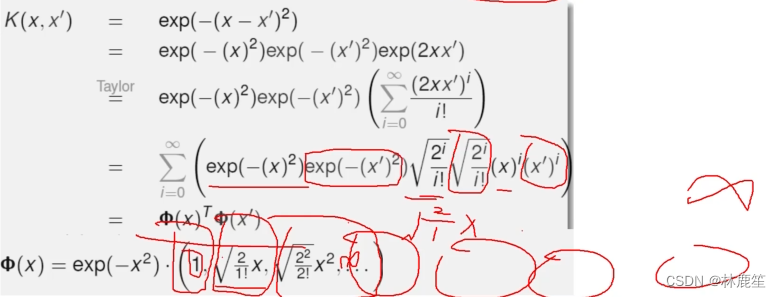 K(x, x′) = exp(−(x − x′)²)
= exp( − (x)²)exp( − (x′)²)exp(2xx′)
Taylor
= exp(−(x)²)exp(−(x′)²) ( ∑_{i=0}^{∞} (2xx′)ⁱ / i! )
= ∑_{i=0}^{∞} ( exp(−(x)²)exp(−(x′)²) √(2ⁱ/i!) √(2ⁱ/i!) (x)ⁱ(x′)ⁱ )
= Φ(x)ᵀΦ(x′)
√(2/1) x
∞
Φ(x) = exp(−x²) · (1, √(2/1!) x, √(2²/2!) x², . . . )
CSDN @林鹿笙